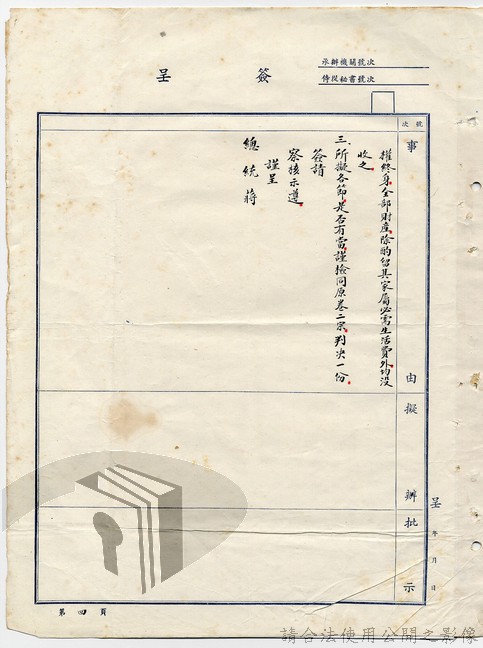 簽呈
承辦機關號次
侍從秘書號次
號次
事由
擬辦
批示
呈 年 月 日
權終身全部財產除酌留其家屬必需生活費外均沒
收之
三、所擬各節是否有當謹檢同原卷二宗判決一份
簽請
察核示遵
謹呈
總統蔣
第四頁
請合法使用公開之影像